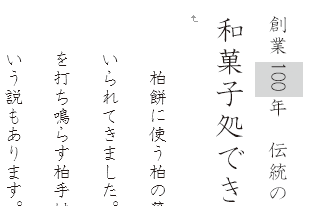 創業100年　伝統の
和菓子処でき
柏餅に使う柏の葉
いられてきました。
を打ち鳴らす柏手は
いう説もあります。